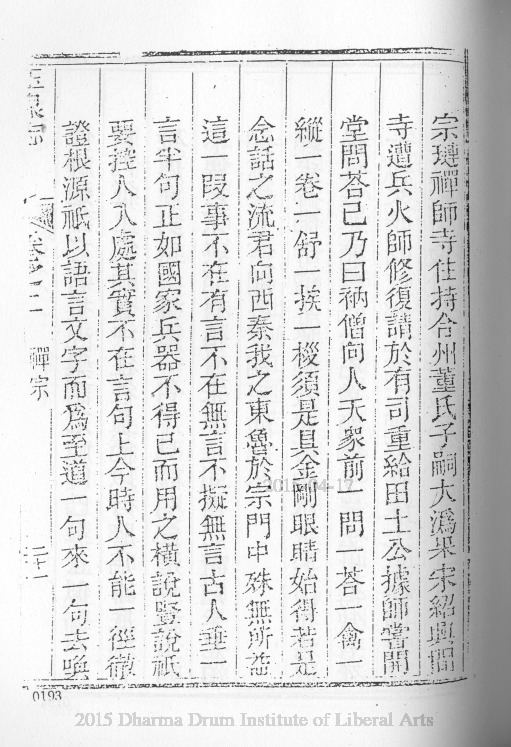 宗璉禪師寺住持合州董氏子嗣大溈果宋紹興間
寺遭兵火師修復請於有司重給田土公據師嘗開
堂問荅已乃曰衲僧向人天衆前一問一荅一擒一
縱一卷一舒一挨一拶須是具金剛眼睛始得若是
念話之流君向西秦我之東魯於宗門中殊無所益
這一叚事不在有言不在無言不擬無言古人垂一
言半句正如國家兵器不得已而用之橫說豎說祇
要控人入處其實不在言句上今時人不能一徑徹
證根源祇以語言文字而爲至道一句來一句去喚
玉泉寺 卷之二 禪宗
0193
2015-04-17
2015 Dharma Drum Institute of Liberal Arts